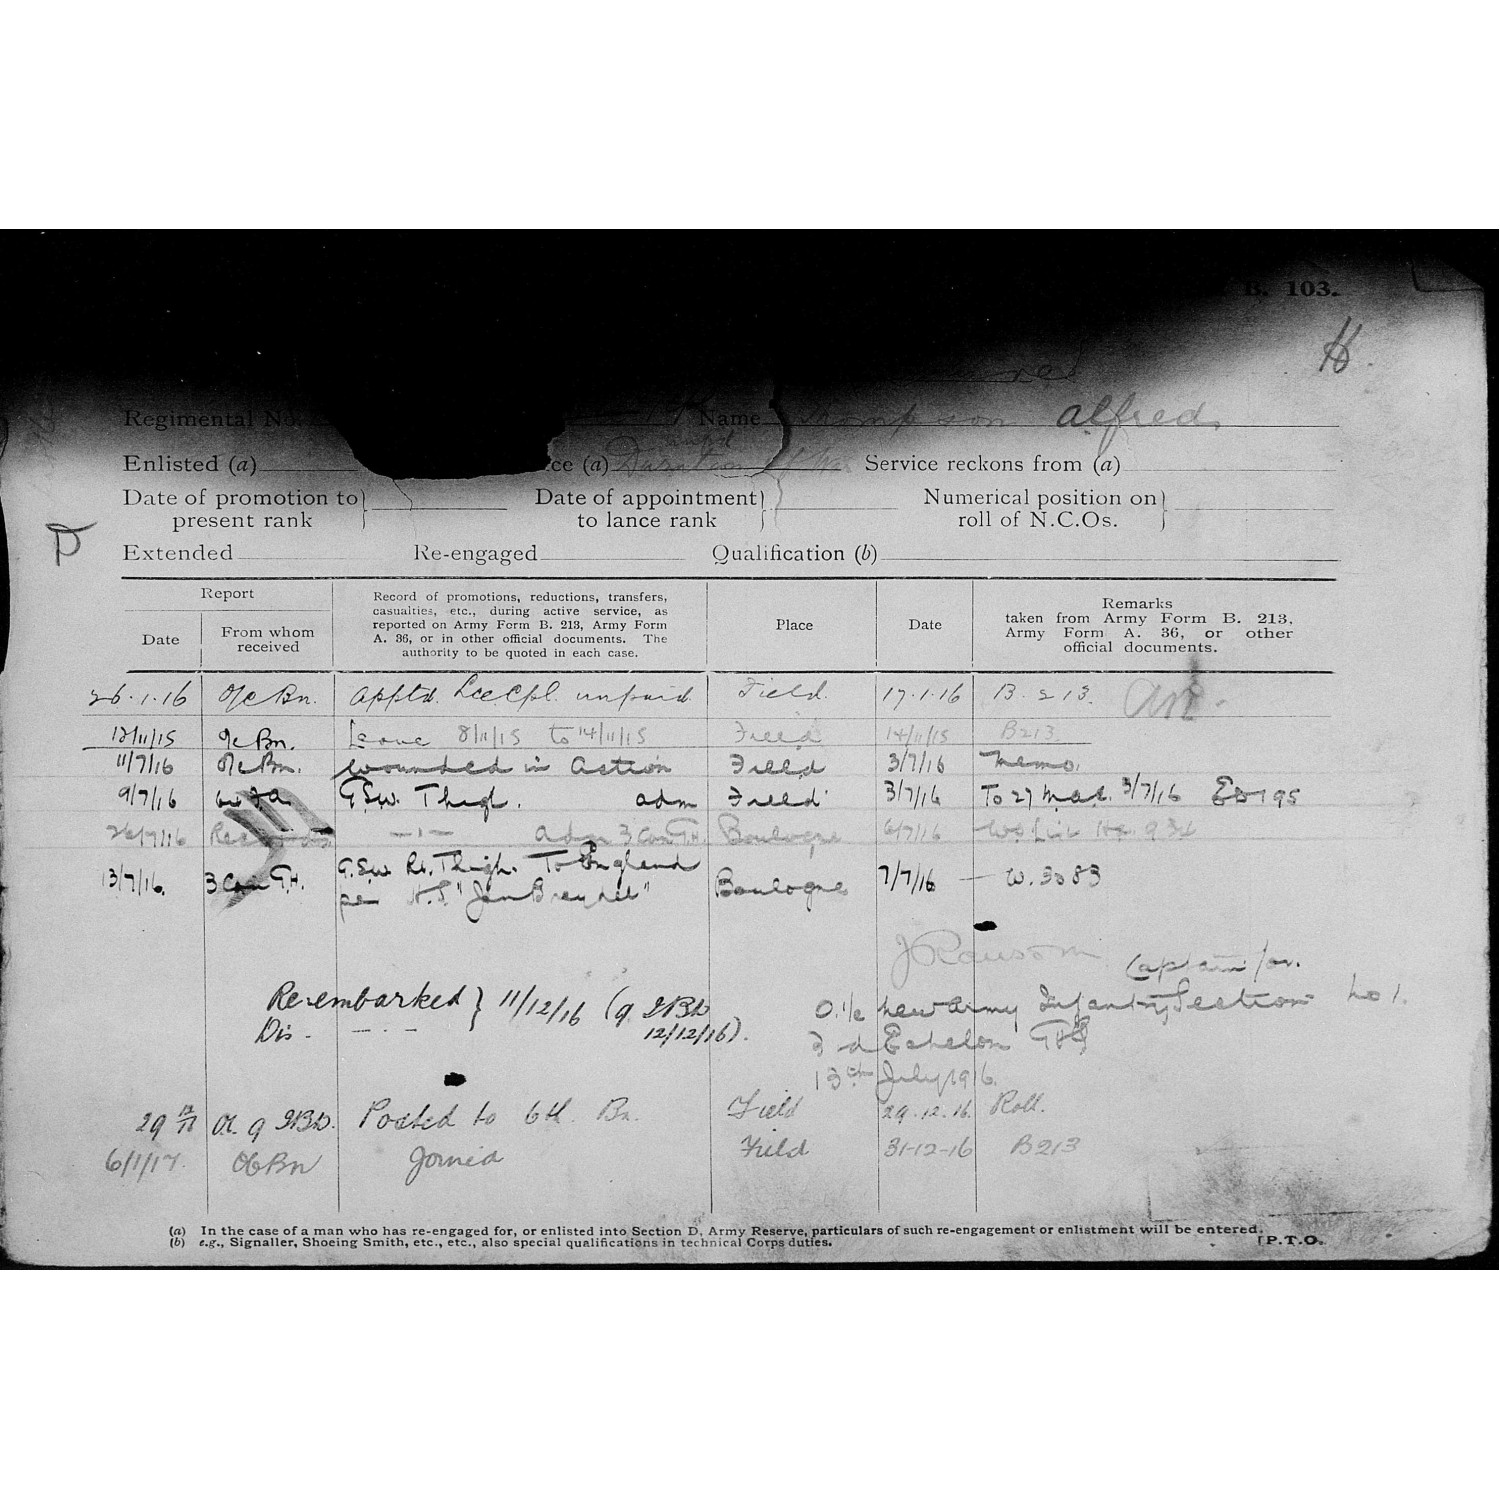 B. 103.
H.
Regimental No. Name Thompson Alfred
Enlisted (a) ce (a) Duration of War Service reckons from (a)
Date of promotion to present rank Date of appointment to lance rank Numerical position on roll of N.C.Os.
D
Extended Re-engaged Qualification (b)
Report
Date
From whom received
Record of promotions, reductions, transfers,
casualties, etc., during active service, as
reported on Army Form B. 213, Army Form
A. 36, or in other official documents. The
authority to be quoted in each case.
Place
Date
Remarks
taken from Army Form B. 213,
Army Form A. 36, or other
official documents.
26.1.16 O/c Bn. Apptd. Lce Cpl. unpaid. Field. 17.1.16 B. 213.
12/11/15 O/c Bn. Leave 8/11/15 to 14/11/15 Field 14/11/15 B213.
11/7/16 O/c Bn. wounded in Action Field 3/7/16 Memo.
9/7/16 G.S.w. Thigh. adm Field 3/7/16 To 27 3/7/16
26/7/16 -"- adm 3 Can G.H. Boulogne 6/7/16
13/7/16. 3 Can G.H. G.S.w. Rt. Thigh. To England Boulogne 7/7/16 — W. 3083
per H.S. "Jan Breydel"
J Ransom Captain for.
O. i/c New Army Infantry Section No 1.
3rd Echelon GHQ
13th July 1916.
Re-embarked } 11/12/16 (9 IBD
Dis. - - - 12/12/16).
29 12/16 9 IBD. Posted to 6th Bn. Field 29.12.16 Roll.
6/1/17. OC Bn Joined Field 31-12-16 B213
(a) In the case of a man who has re-engaged for, or enlisted into Section D, Army Reserve, particulars of such re-engagement or enlistment will be entered.
(b) e.g., Signaller, Shoeing Smith, etc., etc., also special qualifications in technical Corps duties.
[P.T.O.